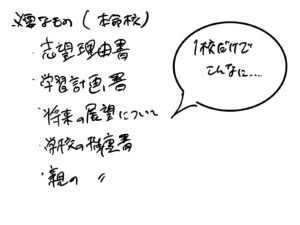 必要なもの(本命校)
・志望理由書
・学習計画書
・将来の展望について
・学校の推薦書
・親の 〃
1校だけで
こんなに....